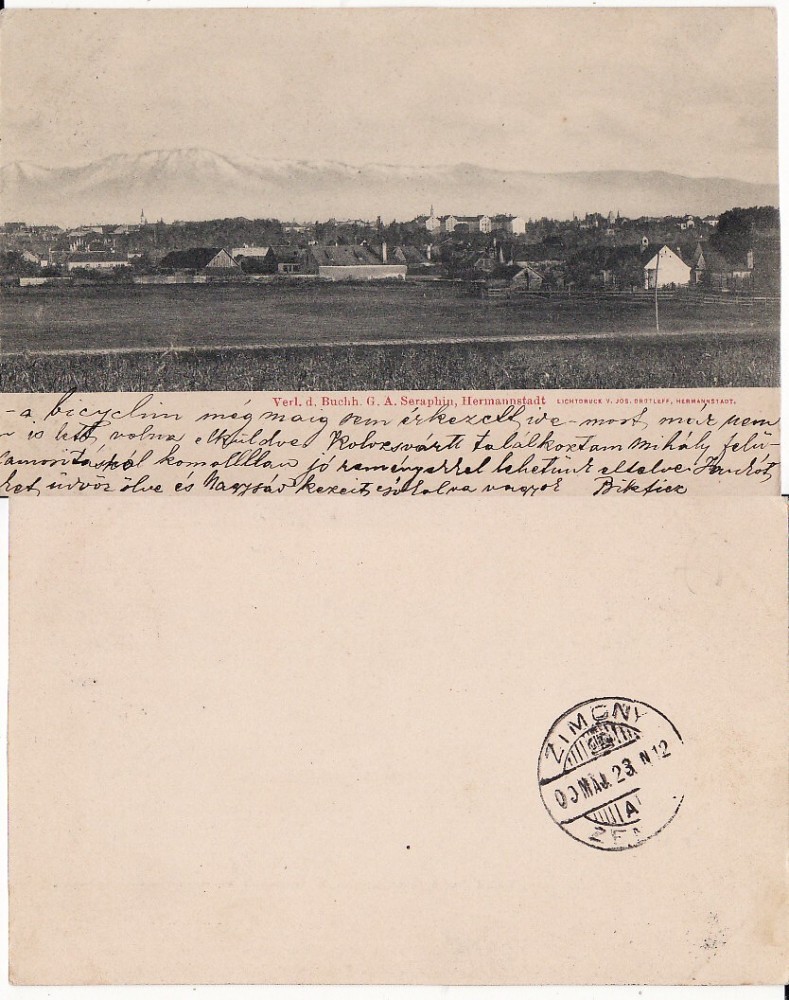 Verl. d. Buchh. G. A. Seraphin, Hermannstadt
LICHTDRUCK V. JOS. DROTLEFF, HERMANNSTADT.
-a bicyclim még maig sem érkezett ide - most már nem
is lett volna elküldve. Kolozsvártt találkoztam Mihály
jó reményekkel lehetünk eltelve.
üdvözölve és Nagysád kezeit csókolva vagyok
ZIMONY
00 MÁJ. 23. N 12
A